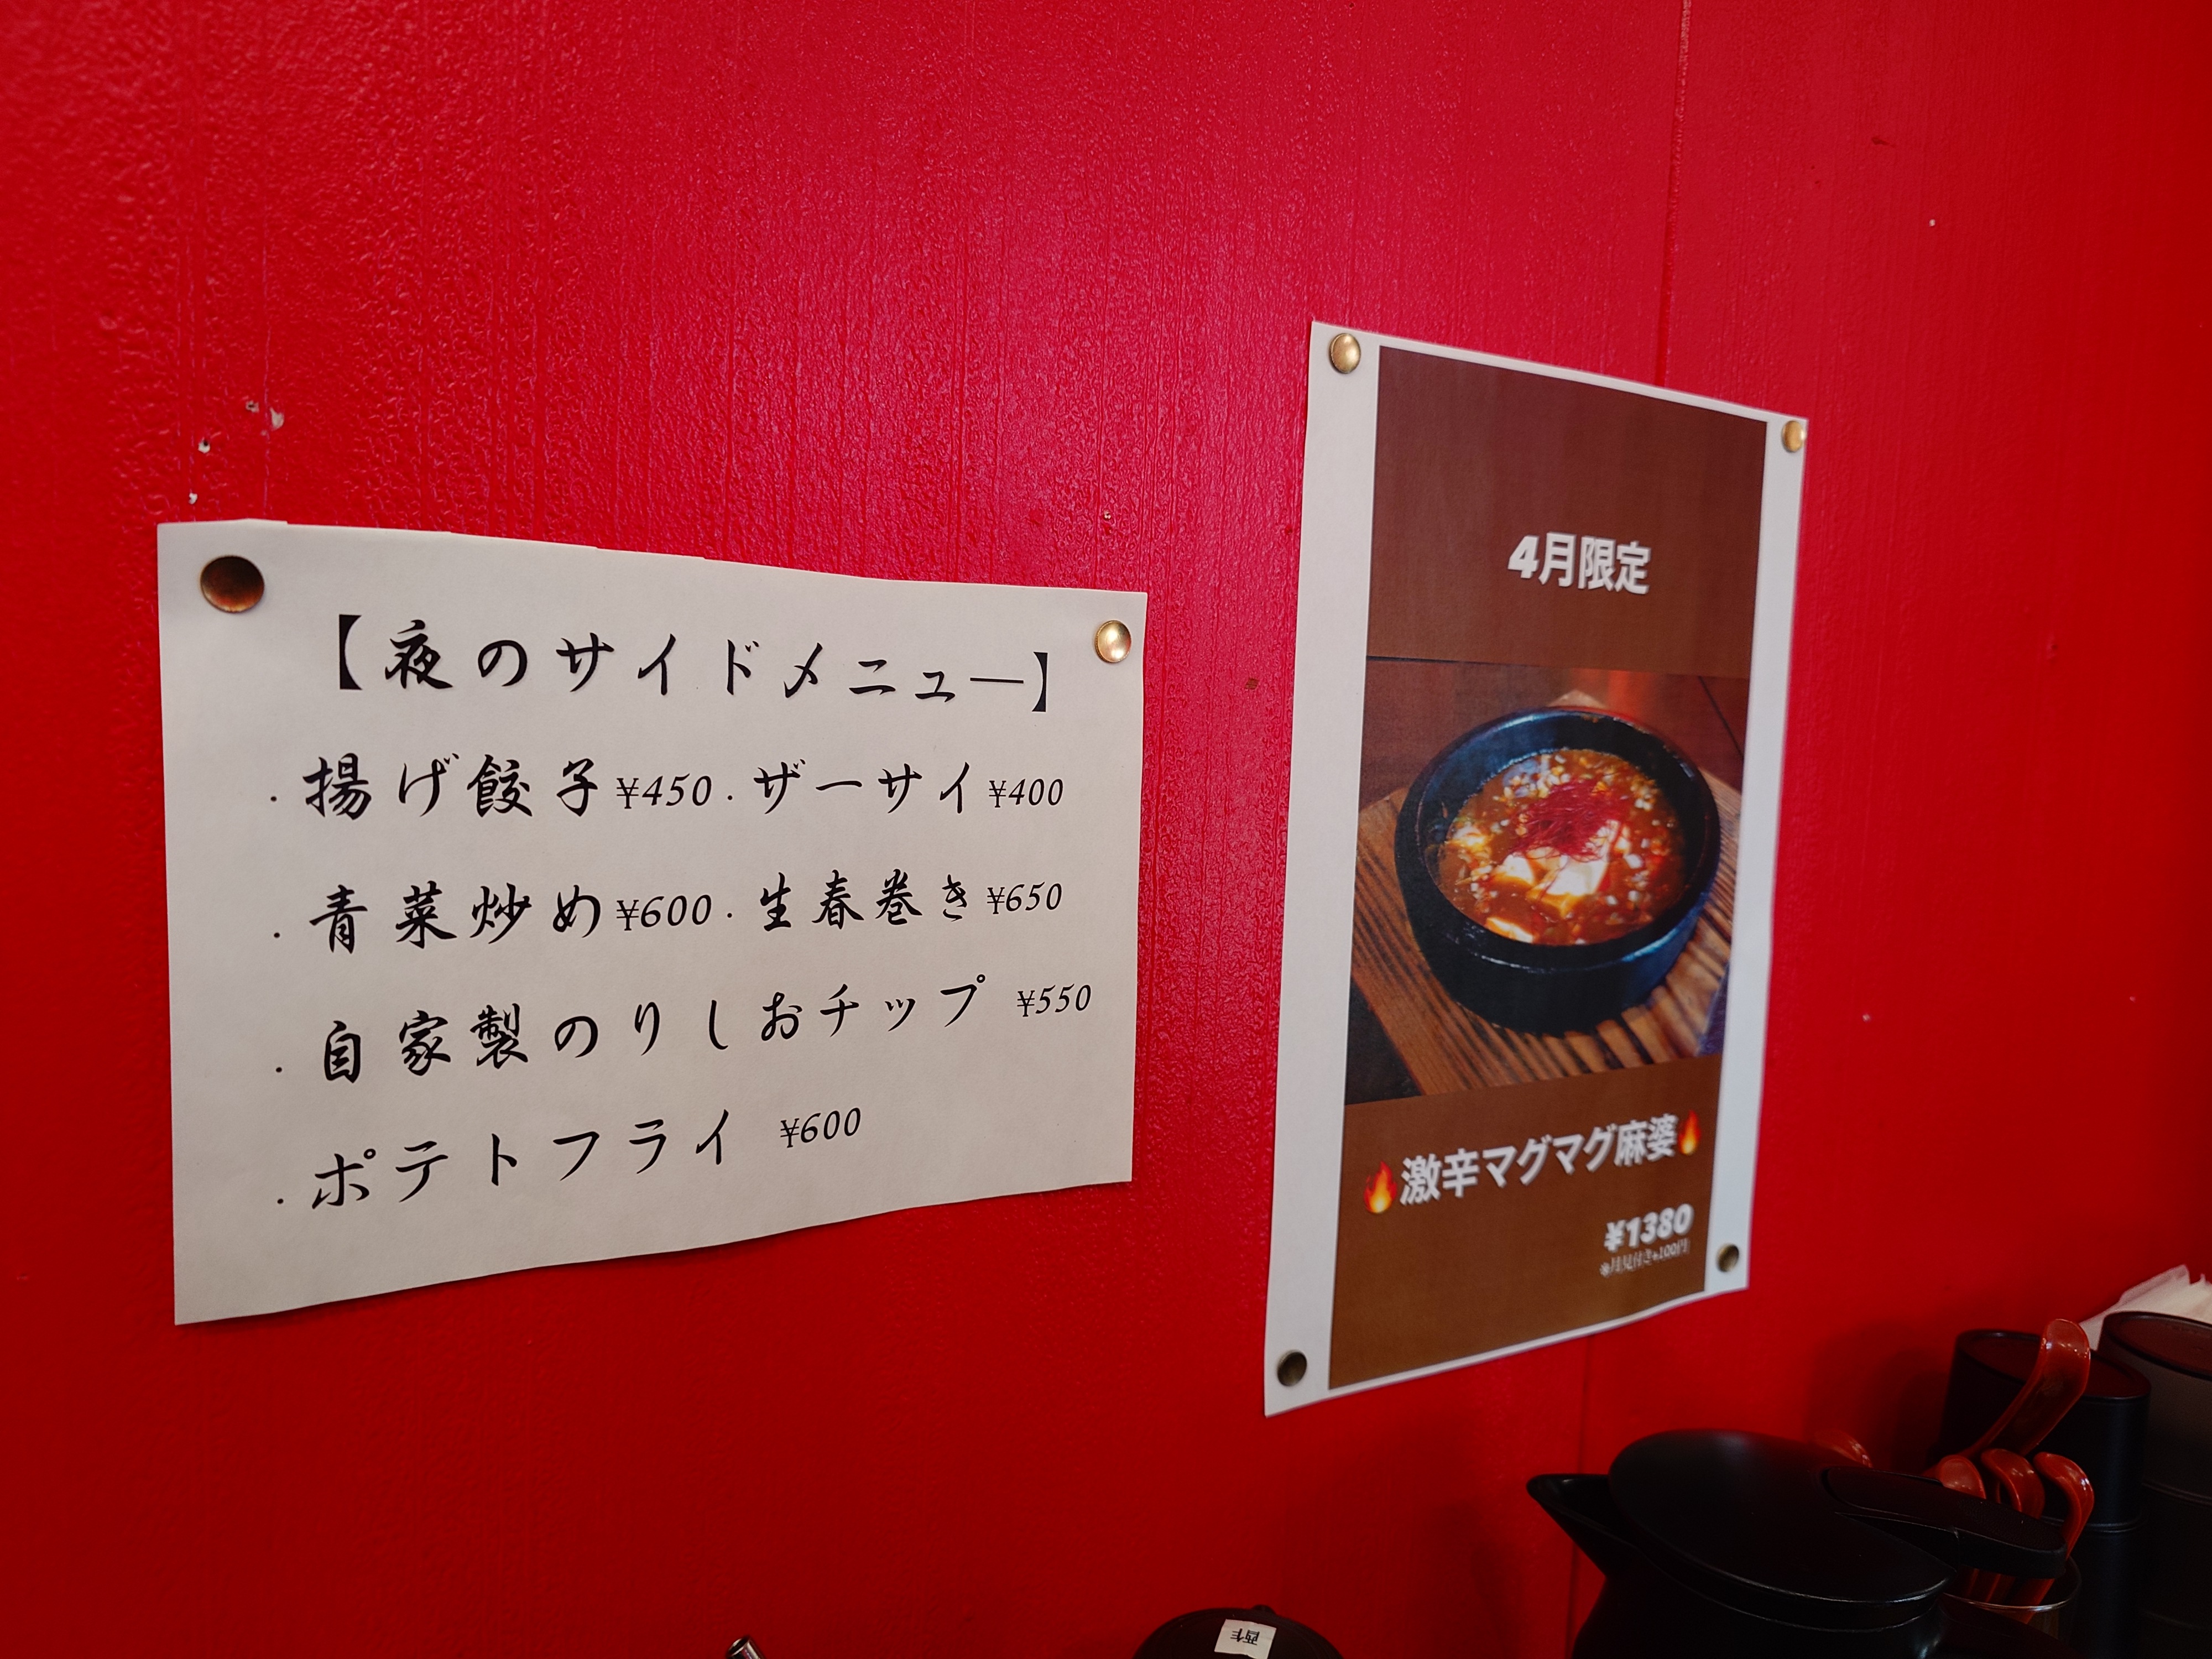 【夜のサイドメニュー】
・揚げ餃子¥450・ザーサイ¥400
・青菜炒め¥600・生春巻き¥650
・自家製のりしおチップ ¥550
・ポテトフライ ¥600
4月限定
🔥激辛マグマグ麻婆🔥
¥1380
※月見付き+100円
酢